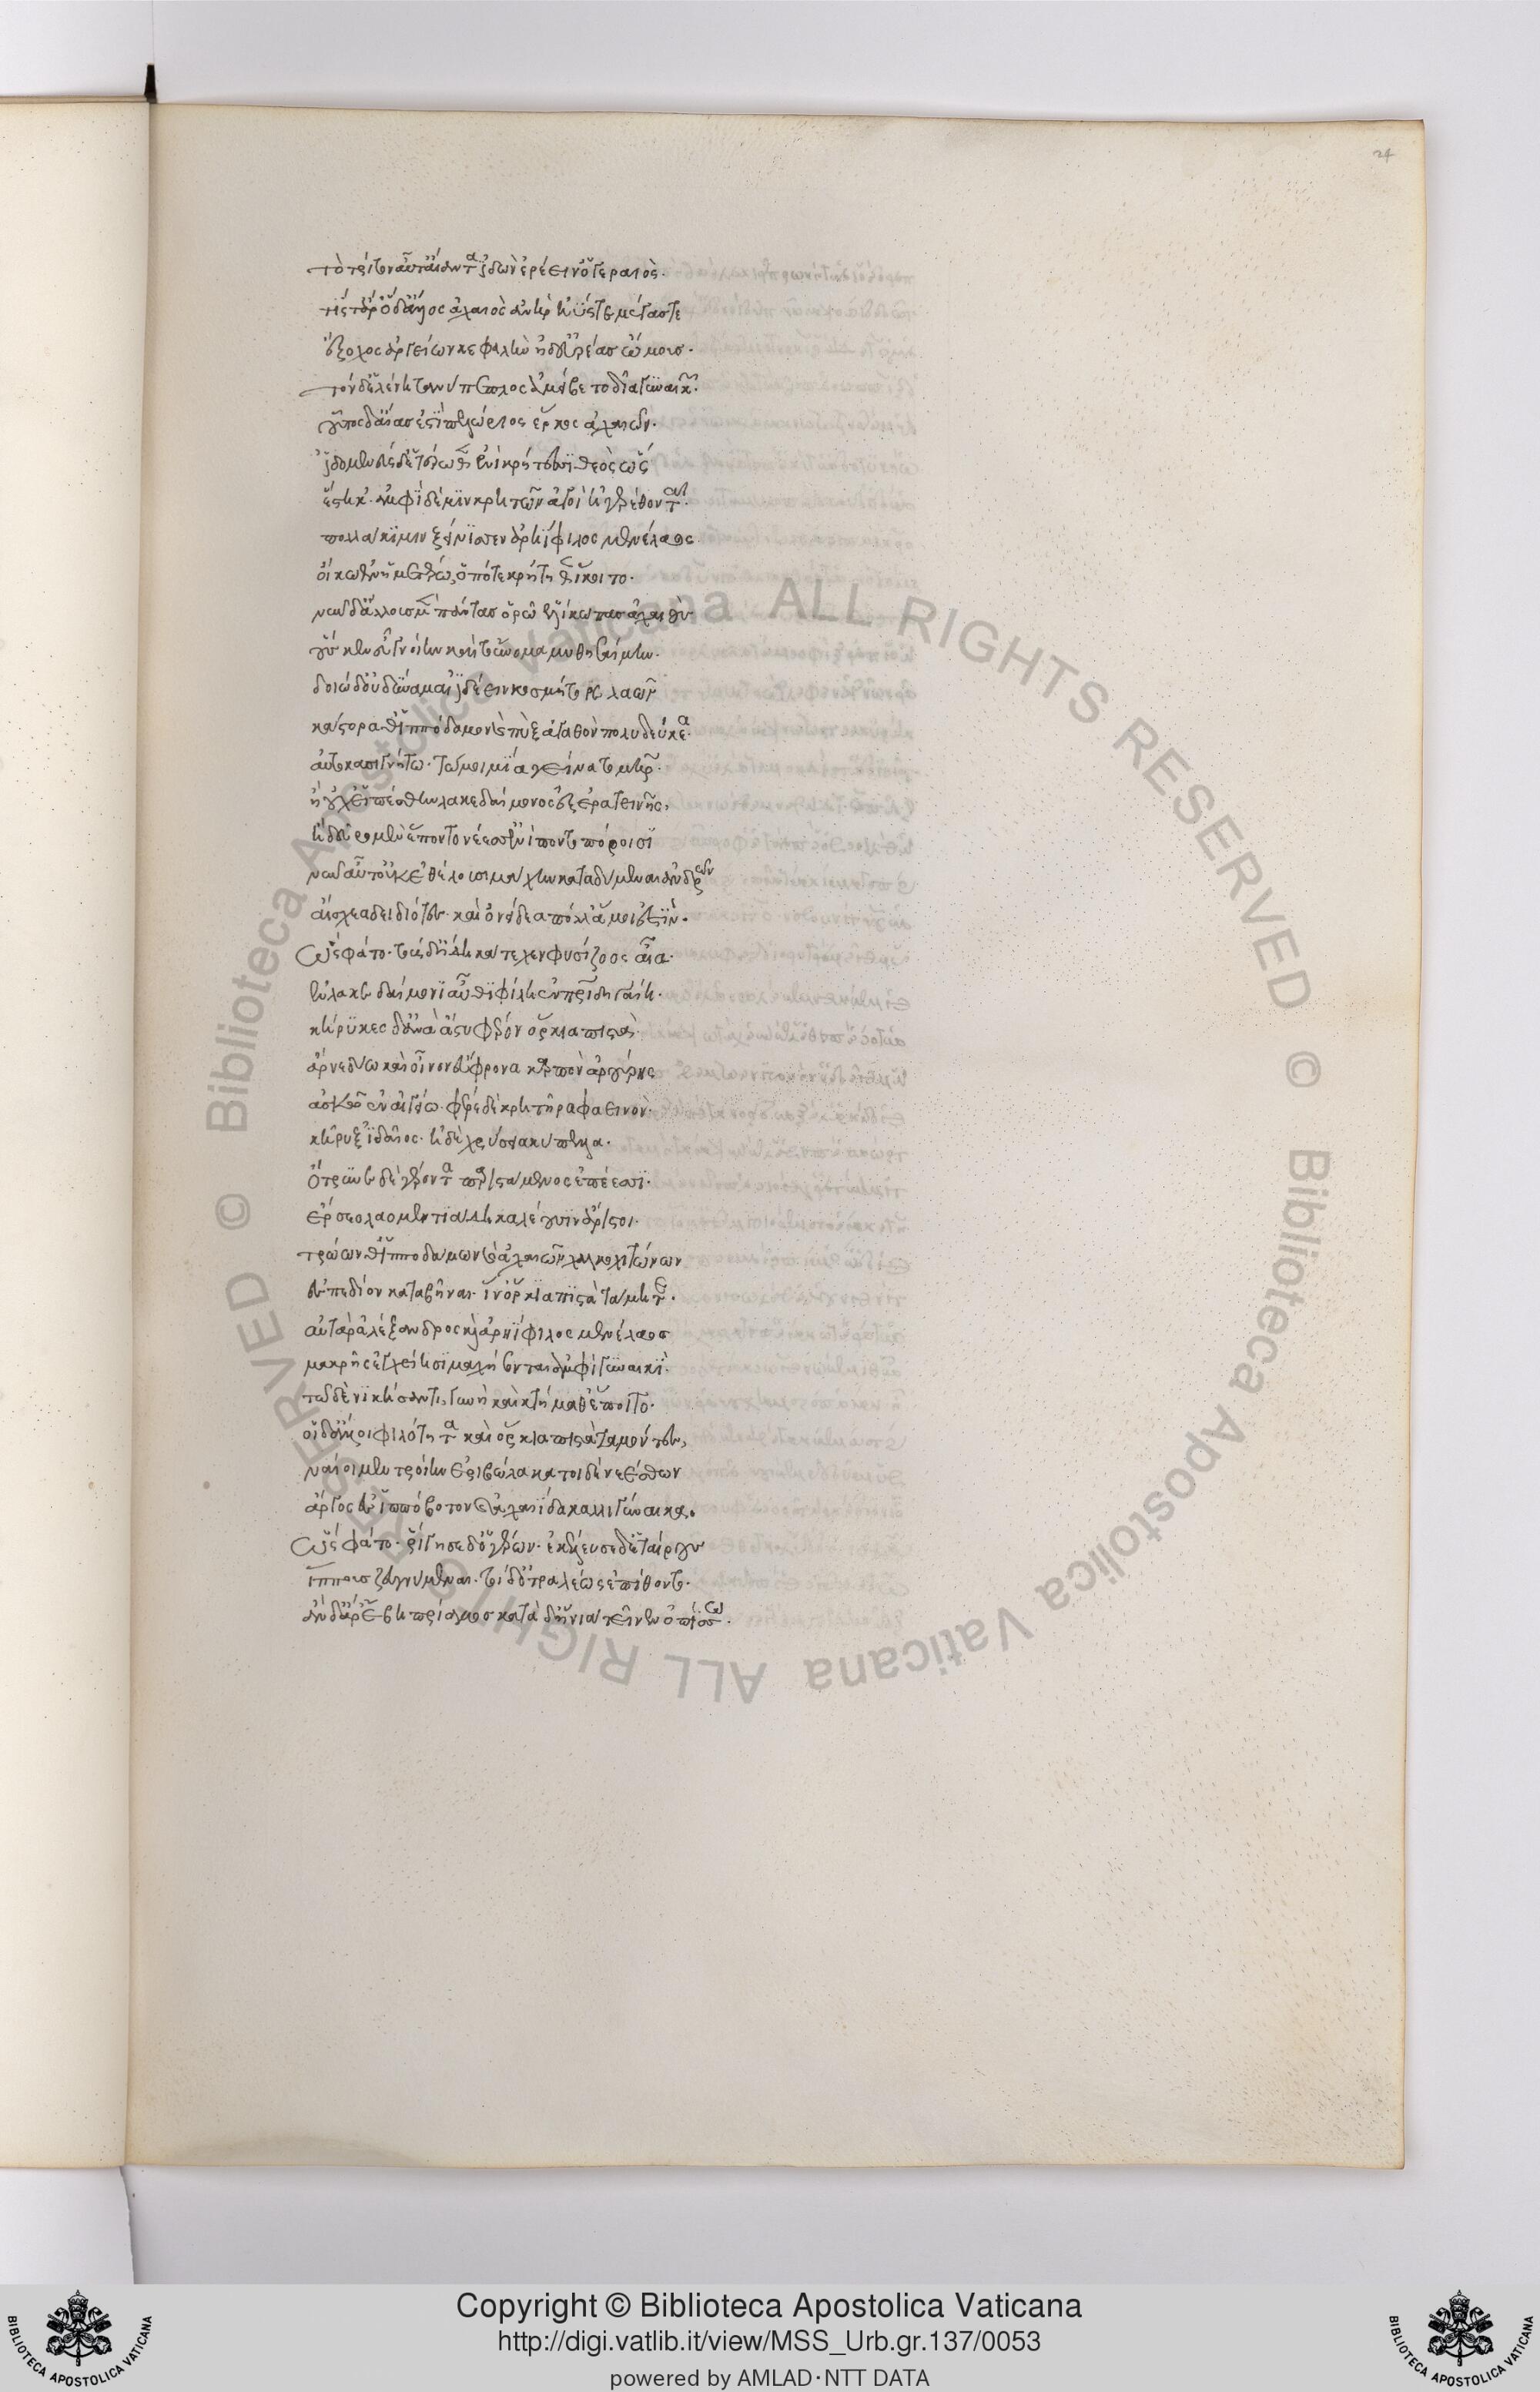 24
τὸ τρίτον αὖτ' αἴαντα ἰδὼν ἐρέειν' ὁ γεραιός.
τίς τ' ἄρ' ὅδ' ἄλλος ἀχαιὸς ἀνὴρ ἠΰς τε μέγας τε
ἔξοχος ἀργείων κεφαλὴν ἠδ' εὐρέας ὤμους.
τὸν δ' ἑλένη τανύπεπλος ἀμείβετο δῖα γυναικῶν.
οὗτος δ' αἴας ἐστὶ πελώριος ἕρκος ἀχαιῶν.
ἰδομενεὺς δ' ἑτέρωθεν ἐνὶ κρήτεσσι θεὸς ὣς
ἕστηκ'. ἀμφὶ δέ μιν κρητῶν ἀγοὶ ἠγερέθονται.
πολλάκι μιν ξείνισσεν ἀρηΐφιλος μενέλαος
οἴκῳ ἐν ἡμετέρῳ, ὁπότε κρήτηθεν ἵκοιτο.
νῦν δ' ἄλλους μὲν πάντας ὁρῶ ἑλίκωπας ἀχαιοὺς
οὕς κεν ἐῢ γνοίην καί τ' οὔνομα μυθησαίμην.
δοιὼ δ' οὐ δύναμαι ἰδέειν κοσμήτορε λαῶν
κάστορά θ' ἱππόδαμον καὶ πὺξ ἀγαθὸν πολυδεύκεα.
αὐτοκασιγνήτω. τώ μοι μία γείνατο μήτηρ.
ἢ οὐχ ἑσπέσθην λακεδαίμονος ἐξ ἐρατεινῆς,
ἢ δεύρω μὲν ἕποντο νέεσσ' ἔνι ποντοπόροισι
νῦν αὖτ' οὐκ ἐθέλουσι μάχην καταδύμεναι ἀνδρῶν
αἴσχεα δειδιότες. καὶ ὀνείδεα πόλλ' ἅ μοί ἐστιν.
ὣς φάτο. τοὺς δ' ἤδη κάτεχεν φυσίζοος αἶα.
ἐν λακεδαίμονι αὖθι φίλῃ ἐν πατρίδι γαίῃ.
κήρυκες δ' ἀνὰ ἄστυ θεῶν φέρον ὅρκια πιστὰ.
ἄρνε δύω καὶ οἶνον ἐΰφρονα καρπὸν ἀρούρης
ἀσκῷ ἐν αἰγείῳ. φέρε δὲ κρητῆρα φαεινὸν.
κῆρυξ ἰδαῖος. ἠδὲ χρύσεια κύπελλα.
ὄτρυνε δὲ γέροντα παριστάμενος ἐπέεσσι.
ὄρσεο λαομεδοντιάδη καλέουσιν ἄριστοι.
τρώων θ' ἱπποδάμων καὶ ἀχαιῶν χαλκοχιτώνων
ἐς πεδίον καταβῆναι. ἵν' ὅρκια πιστὰ τάμητε.
αὐτὰρ ἀλέξανδρος καὶ ἀρηΐφιλος μενέλαος
μακρῇς ἐγχείῃσι μαχήσονται ἀμφὶ γυναικὶ.
τῷ δέ νικήσαντι, γυνὴ καὶ κτήμαθ' ἕποιτο.
οἱ δ' ἄλλοι φιλότητα καὶ ὅρκια πιστὰ ταμόντες,
ναίοιμεν τροίην ἐριβώλακα τοὶ δὲ νεέσθων
ἄργος ἐς ἱππόβοτον καὶ ἀχαιΐδα καλλιγύναικα.
ὣς φάτο. ῥίγησε δ' ὁ γέρων. ἐκέλευσε δ' ἑταίρους
ἵππους ζευγνύμεναι. τοὶ δ' ὀτραλέως ἐπίθοντο.
ἂν δ' ἄρ' ἔβη πρίαμος κατὰ δ' ἡνία τεῖνεν ὀπίσσω.
Copyright © Biblioteca Apostolica Vaticana
http://digi.vatlib.it/view/MSS_Urb.gr.137/0053
powered by AMLAD·NTT DATA
Biblioteca Apostolica Vaticana ALL RIGHTS RESERVED ©
Biblioteca Apostolica Vaticana ALL RIGHTS RESERVED ©
BIBLIOTECA APOSTOLICA VATICANA
BIBLIOTECA APOSTOLICA VATICANA